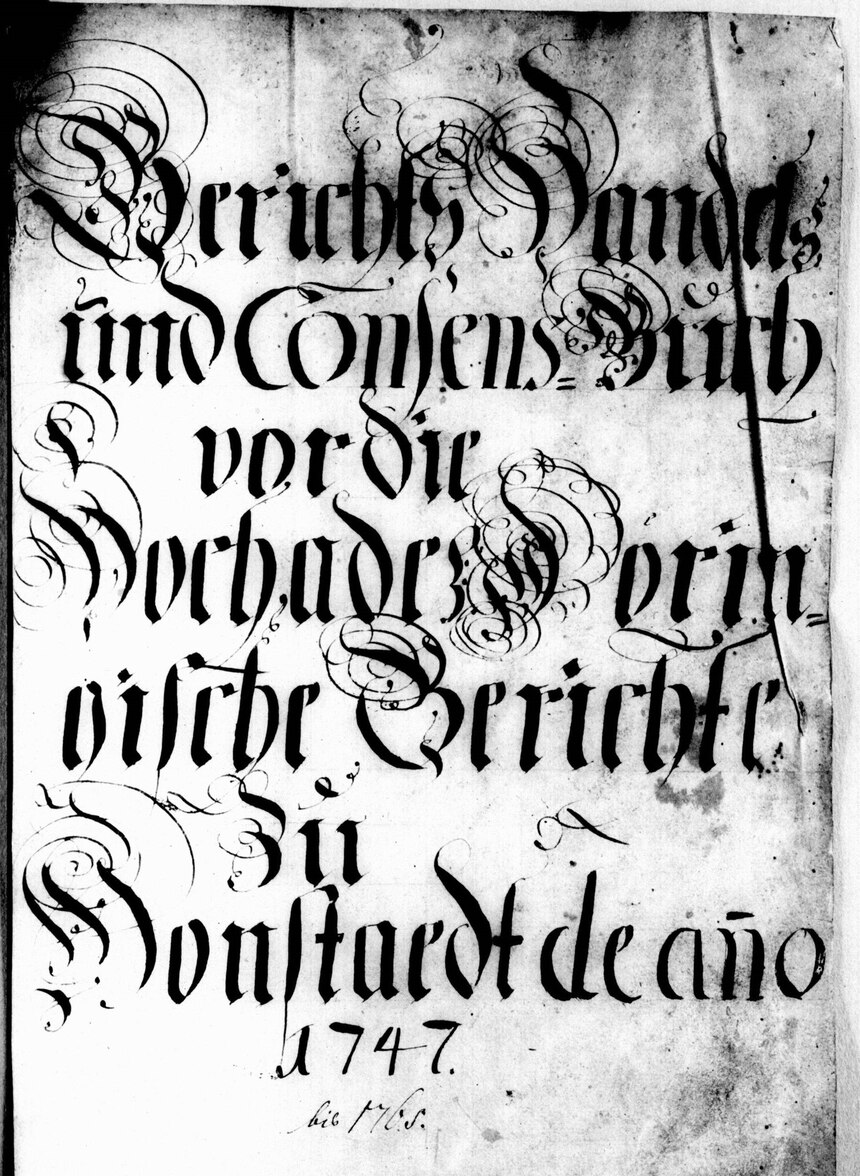 Gerichts Handels
und Consens=Buch
vor die
Hochadel. Dörin=
gische Gerichte
zu
Honstaedt de año
1747.
bis 1765.